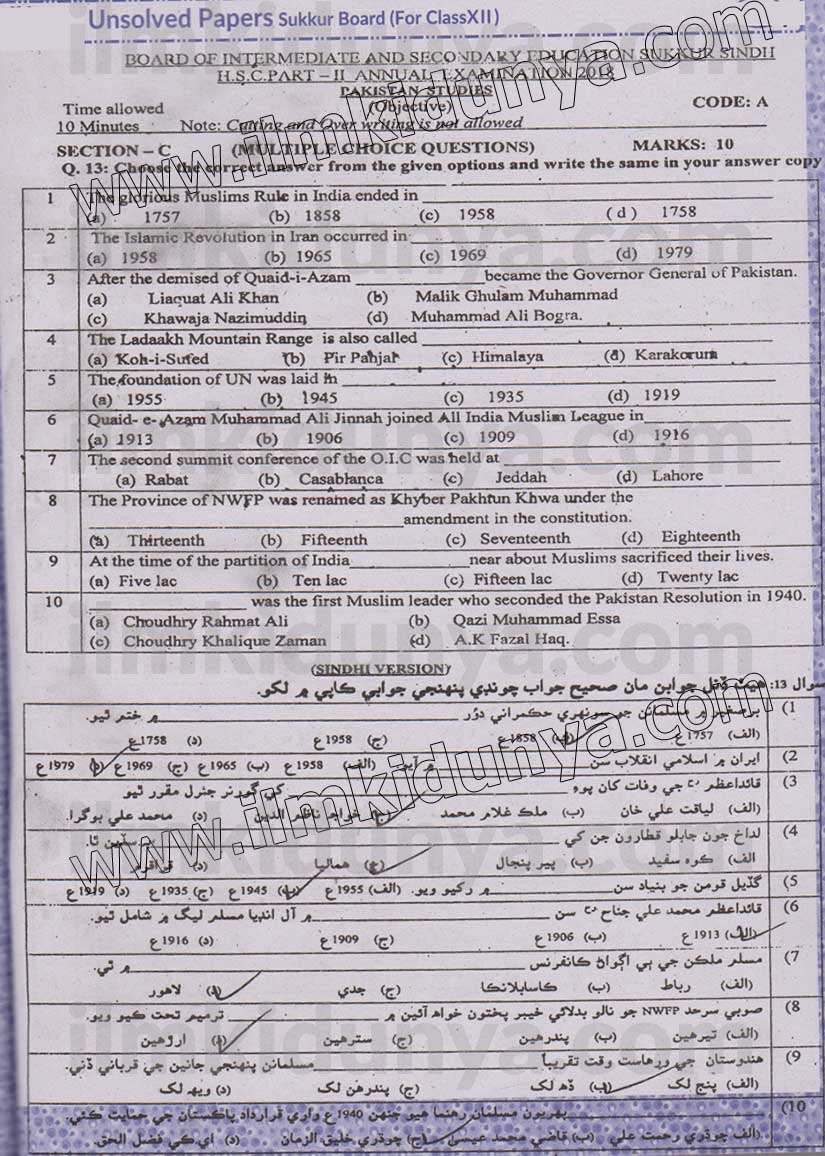 Unsolved Papers Sukkur Board (For ClassXII)
BOARD OF INTERMEDIATE AND SECONDARY EDUCATION SUKKUR SINDH
H.S.C.PART – II ANNUAL EXAMINATION 2018
PAKISTAN STUDIES
Time allowed (Objective) CODE: A
10 Minutes Note: Cutting and Over writing is not allowed
SECTION – C (MULTIPLE CHOICE QUESTIONS) MARKS: 10
Q. 13: Choose the correct answer from the given options and write the same in your answer copy
1 The glorious Muslims Rule in India ended in
(a) 1757 (b) 1858 (c) 1958 (d) 1758
2 The Islamic Revolution in Iran occurred in
(a) 1958 (b) 1965 (c) 1969 (d) 1979
3 After the demised of Quaid-i-Azam ____________ became the Governor General of Pakistan.
(a) Liaquat Ali Khan (b) Malik Ghulam Muhammad
(c) Khawaja Nazimuddin (d) Muhammad Ali Bogra.
4 The Ladaakh Mountain Range is also called
(a) Koh-i-Sufed (b) Pir Panjal (c) Himalaya (d) Karakorum
5 The foundation of UN was laid in
(a) 1955 (b) 1945 (c) 1935 (d) 1919
6 Quaid- e- Azam Muhammad Ali Jinnah joined All India Muslim League in
(a) 1913 (b) 1906 (c) 1909 (d) 1916
7 The second summit conference of the O.I.C was held at
(a) Rabat (b) Casablanca (c) Jeddah (d) Lahore
8 The Province of NWFP was renamed as Khyber Pakhtun Khwa under the
____________ amendment in the constitution.
(a) Thirteenth (b) Fifteenth (c) Seventeenth (d) Eighteenth
9 At the time of the partition of India____________near about Muslims sacrificed their lives.
(a) Five lac (b) Ten lac (c) Fifteen lac (d) Twenty lac
10 ____________ was the first Muslim leader who seconded the Pakistan Resolution in 1940.
(a) Choudhry Rahmat Ali (b) Qazi Muhammad Essa
(c) Choudhry Khalique Zaman (d) A.K Fazal Haq.
(SINDHI VERSION)
سوال 13: هيٺ ڏنل جوابن مان صحيح جواب چونڊي پنهنجي جوابي ڪاپي ۾ لکو.
(1 برصغير ۾ مسلمانن جي سونهري حڪمراني دؤر ____________ ۾ ختم ٿيو.
(الف) 1757ع (ب) 1858ع (ج) 1958ع (د) 1758ع
(2 ايران ۾ اسلامي انقلاب سن ____________ ۾ آيو. (الف) 1958ع (ب) 1965ع (ج) 1969ع (د) 1979ع
(3 قائداعظم جي وفات کان پوءِ ____________ کي گورنر جنرل مقرر ٿيو
(الف) لياقت علي خان (ب) ملڪ غلام محمد (ج) خواجا ناظم الدين (د) محمد علي بوگرا.
(4 لداخ جون جابلو قطارون جن کي ____________ سڏين ٿا.
(الف) ڪوه سفيد (ب) پير پنجال (ج) هماليا (د) قراقرم
(5 گڏيل قومن جو بنياد سن ____________ ۾ رکيو ويو. (الف) 1955ع (ب) 1945ع (ج) 1935ع (د) 1919ع
(6 قائداعظم محمد علي جناح سن ____________ ۾ آل انڊيا مسلم ليگ ۾ شامل ٿيو.
(الف) 1913ع (ب) 1906ع (ج) 1909ع (د) 1916ع
(7 مسلم ملڪن جي ٻي اڳواڻ ڪانفرنس ____________ ۾ ٿي.
(الف) رباط (ب) ڪاسابلانڪا (ج) جدي (د) لاهور
(8 صوبي سرحد NWFP جو نالو بدلائي خيبر پختون خواهه آئين ۾ ____________ ترميم تحت ڪيو ويو.
(الف) تيرهين (ب) پندرهين (ج) سترهين (د) ارڙهين
(9 هندوستان جي ورهاست وقت تقريباً ____________ مسلمانن پنهنجي جانين جي قرباني ڏني.
(الف) پنج لک (ب) ڏهه لک (ج) پندرهن لک (د) ويهه لک
(10 ____________ پهريون مسلمان رهنما هيو جنهن 1940ع واري قرارداد پاڪستان جي حمايت ڪئي.
(الف) چوڌري رحمت علي (ب) قاضي محمد عيسيٰ (ج) چوڌري خليق الزمان (د) اي ڪي فضل الحق.
www.ilmkidunya.com
www.ilmkidunya.com
ilmkidunya.com
ilmkidunya.com
ilmkidunya.com
ilmkidunya.com
ilmkidunya.com